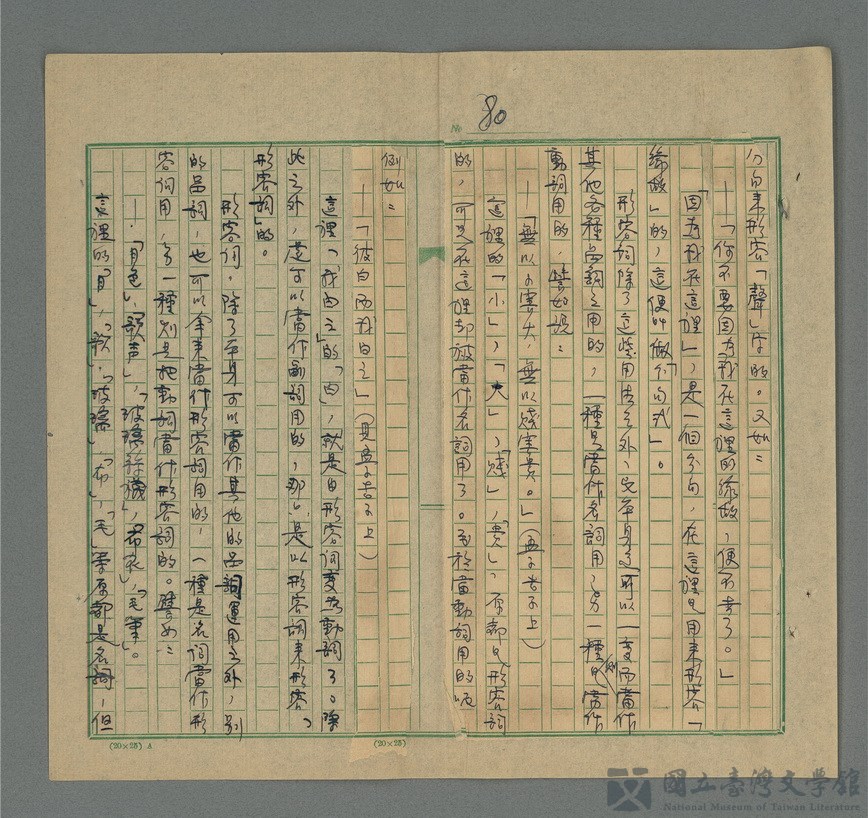 № 80
分句來形容「聲」字的。又如：
——「你不要因為我在這裡的緣故，便不去了。」
「因為我在這裡」，是一個分句，在這裡是用來形容「
緣故」的，這便叫做「分句式」。
形容詞除了這些用法之外，它本身還可以一變而當作
其他各種品詞之用的，一種是當作名詞用；另一種則是當作
動詞用的，譬如說：
——「無以小害大，無以賤害貴。」（孟子告子上）
這裡的「小」，「大」，「賤」，「貴」，原都是形容詞
的，可是在這裡卻被當作名詞用了。至於當動詞用的呢
例如：
——「彼白而我白之」（見孟子告子上）
這裡「我白之」的「白」，就是由形容詞變為動詞了。除
此之外，還可以當作副詞用的，那只是以形容詞來形容「
形容詞」的。
形容詞，除了本身可以當作其他的品詞運用之外，別
的品詞，也可以拿來當作形容詞用的，一種是名詞當作形
容詞用，另一種則是把動詞當作形容詞的。譬如：
——「月色」，「歌声」，「玻璃絲襪」，「布衣」，「毛筆」。
這裡的「月」，「歌」，「玻璃」，「布」，「毛」等原都是名詞，但
(20×25) A
(20×25)
國立臺灣文學館
National Museum of Taiwan Literature